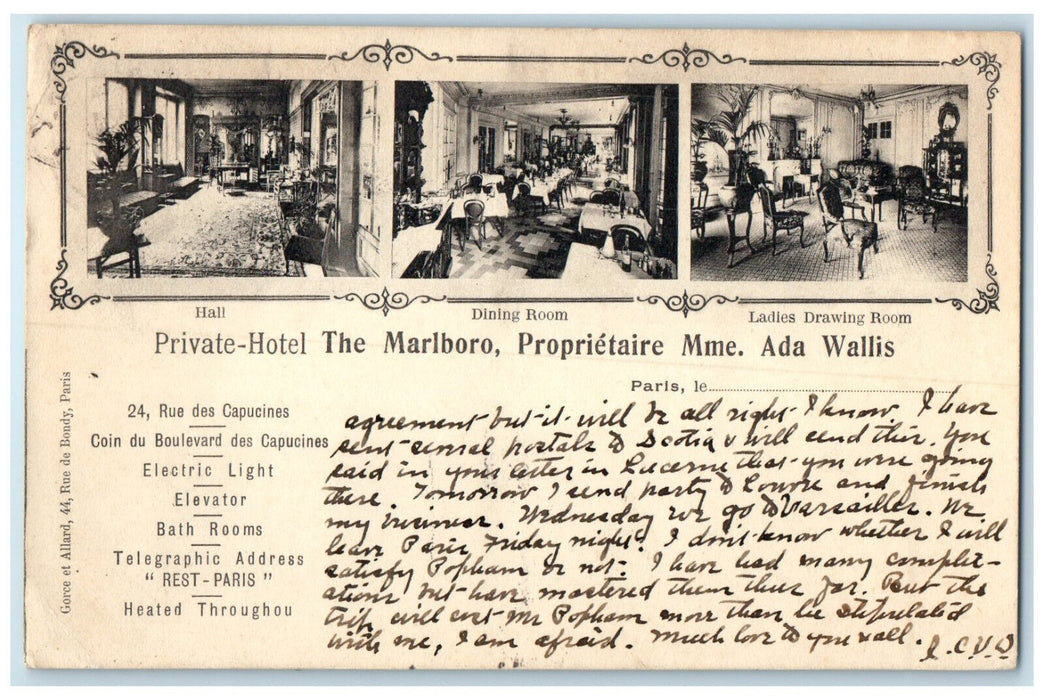 Hall
Dining Room
Ladies Drawing Room
Private-Hotel The Marlboro, Propriétaire Mme. Ada Wallis
Paris, le
24, Rue des Capucines
Coin du Boulevard des Capucines
Electric Light
Elevator
Bath Rooms
Telegraphic Address
" REST-PARIS "
Heated Throughou
Gorce et Allard, 44, Rue de Bondy, Paris
agreement but it will be all right I know. I have
sent several postals to Scotia & will send this. You
said in your letter in Lucerne that you were going
there. Tomorrow I send party to Louvre and finish
my business. Wednesday we go to Versailles. We
leave Paris Friday night. I don't know whether I will
satisfy Popham or not. I have had many complic-
ations but have mastered them thus far. But the
trip will cost Mr Popham more than he stipulated
with me, I am afraid. Much love to you & all.